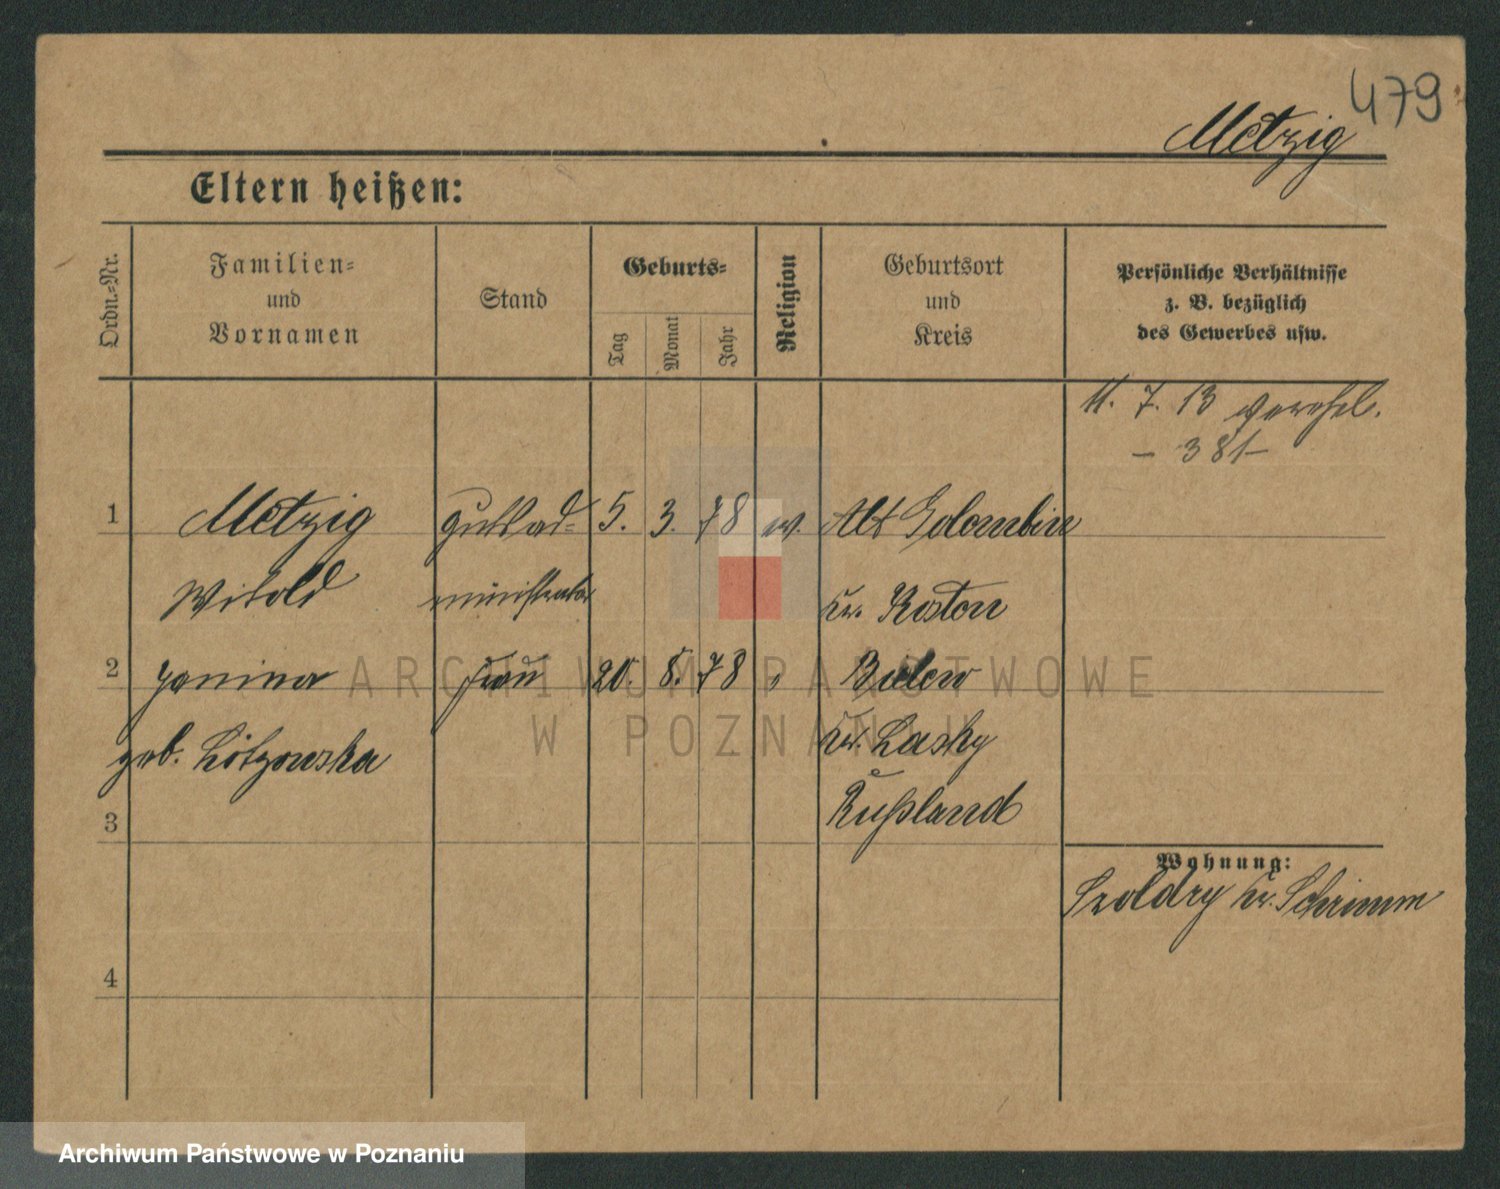 479
Metzig
Eltern heißen:
Ordn.-Nr.
Familien-
und
Vornamen
Stand
Geburts-
Tag
Monat
Jahr
Religion
Geburtsort
und
Kreis
Persönliche Verhältnisse
z. B. bezüglich
des Gewerbes usw.
11. 7. 13 verehel.
- 381-
1 Metzig Gutsad= 5. 3. 78 Alt Golembin
Witold ministrator Kr. Kosten
2 Janina Frau 20. 8. 78 "
geb. Kr. Lasky
3 Rußland
Wohnung:
Szoldry Kr. Schrimm
4
ARCHIWUM PAŃSTWOWE
W POZNANIU
Archiwum Państwowe w Poznaniu